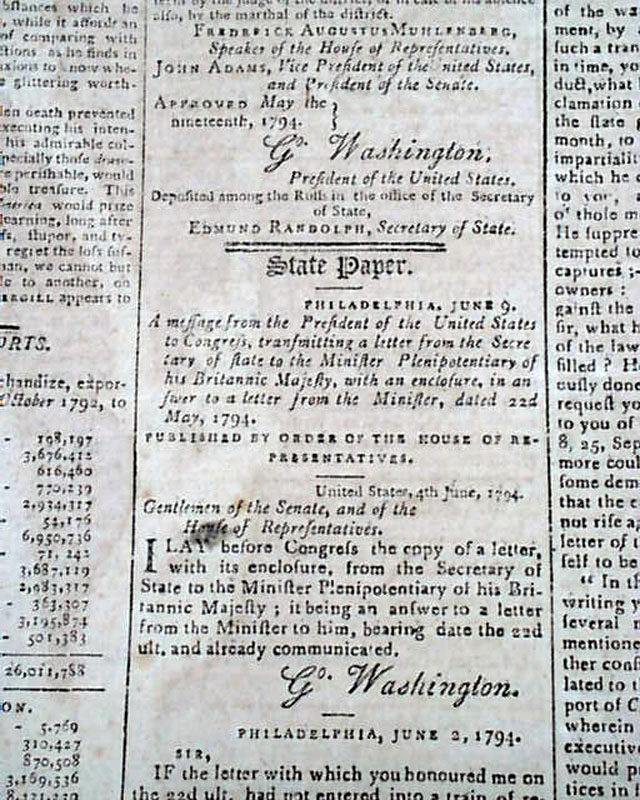 bstances which he
, while it affords an
of comparing with
ctions as he finds in
xious to know whe-
e glittering worth-
len death prevented
executing his inten-
his admirable col-
pecially those
re perishable, would
ble treasure. This
America would prize
learning, long after
ft, stupor, and ty-
regret the loss suf-
man, we cannot but
le to another, on
appears to
ORTS.
chandize, expor-
October 1792, to
- 198,197
3,676,412
616,460
- 770,239
2,934,317
- 52,176
6,950,736
- 71,242
3,687,119
2,983,317
- 363,307
3,195,874
- 501,383
26,011,788
ON.
- 5,769
310,427
870,508
3,169,536
term by the judge of the district, or in case of his absence
also, by the marshal of the district.
FREDERICK AUGUSTUS MUHLENBERG,
Speaker of the House of Representatives.
JOHN ADAMS, Vice President of the United States,
and President of the Senate.
APPROVED May the }
nineteenth, 1794.
Go. Washington,
President of the United States.
Deposited among the Rolls in the office of the Secretary
of State,
EDMUND RANDOLPH, Secretary of State.
State Paper.
PHILADELPHIA, JUNE 9.
A message from the President of the United States
to Congress, transmitting a letter from the Secre
tary of state to the Minister Plenipotentiary of
his Britannic Majesty, with an enclosure, in an
swer to a letter from the Minister, dated 22d
May, 1794.
PUBLISHED BY ORDER OF THE HOUSE OF RE-
PRESENTATIVES.
United States, 4th June, 1794.
Gentlemen of the Senate, and of the
House of Representatives.
I LAY before Congress the copy of a letter,
with its enclosure, from the Secretary of
State to the Minister Plenipotentiary of his Bri-
tannic Majesty ; it being an answer to a letter
from the Minister to him, bearing date the 22d
ult. and already communicated.
Go. Washington.
PHILADELPHIA, JUNE 2, 1794.
SIR,
IF the letter with which you honoured me on
the 22d ult. had not entered into a train of re-
of the wa
ment, by
such a tran
in time, yo
duct, what
clamation
the state
month, to
impartialit
which he
to you,
of those m
He suppre
tempted to
captures ;
owners :
gainst the
sir, what
of the law
filled ? H
ously done
request yo
to you of
8, 25, Sep
more coul
some dem
that the
not rise a
letter of t
self to be
“ In th
writing y
several
mentione
ther cons
lated to t
port of C
wherein
executive
would p
tices in